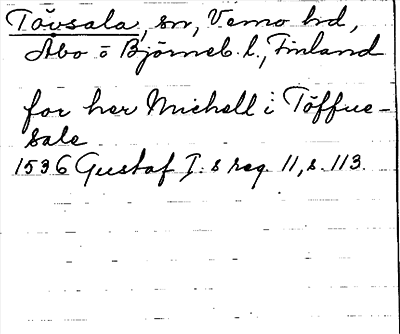 Tövsala, sn, Vemo hd,
Åbo o Björneb. l., Finland
for her Michell i Töffue-
sale
1536 Gustaf I:s reg. 11, s. 113.